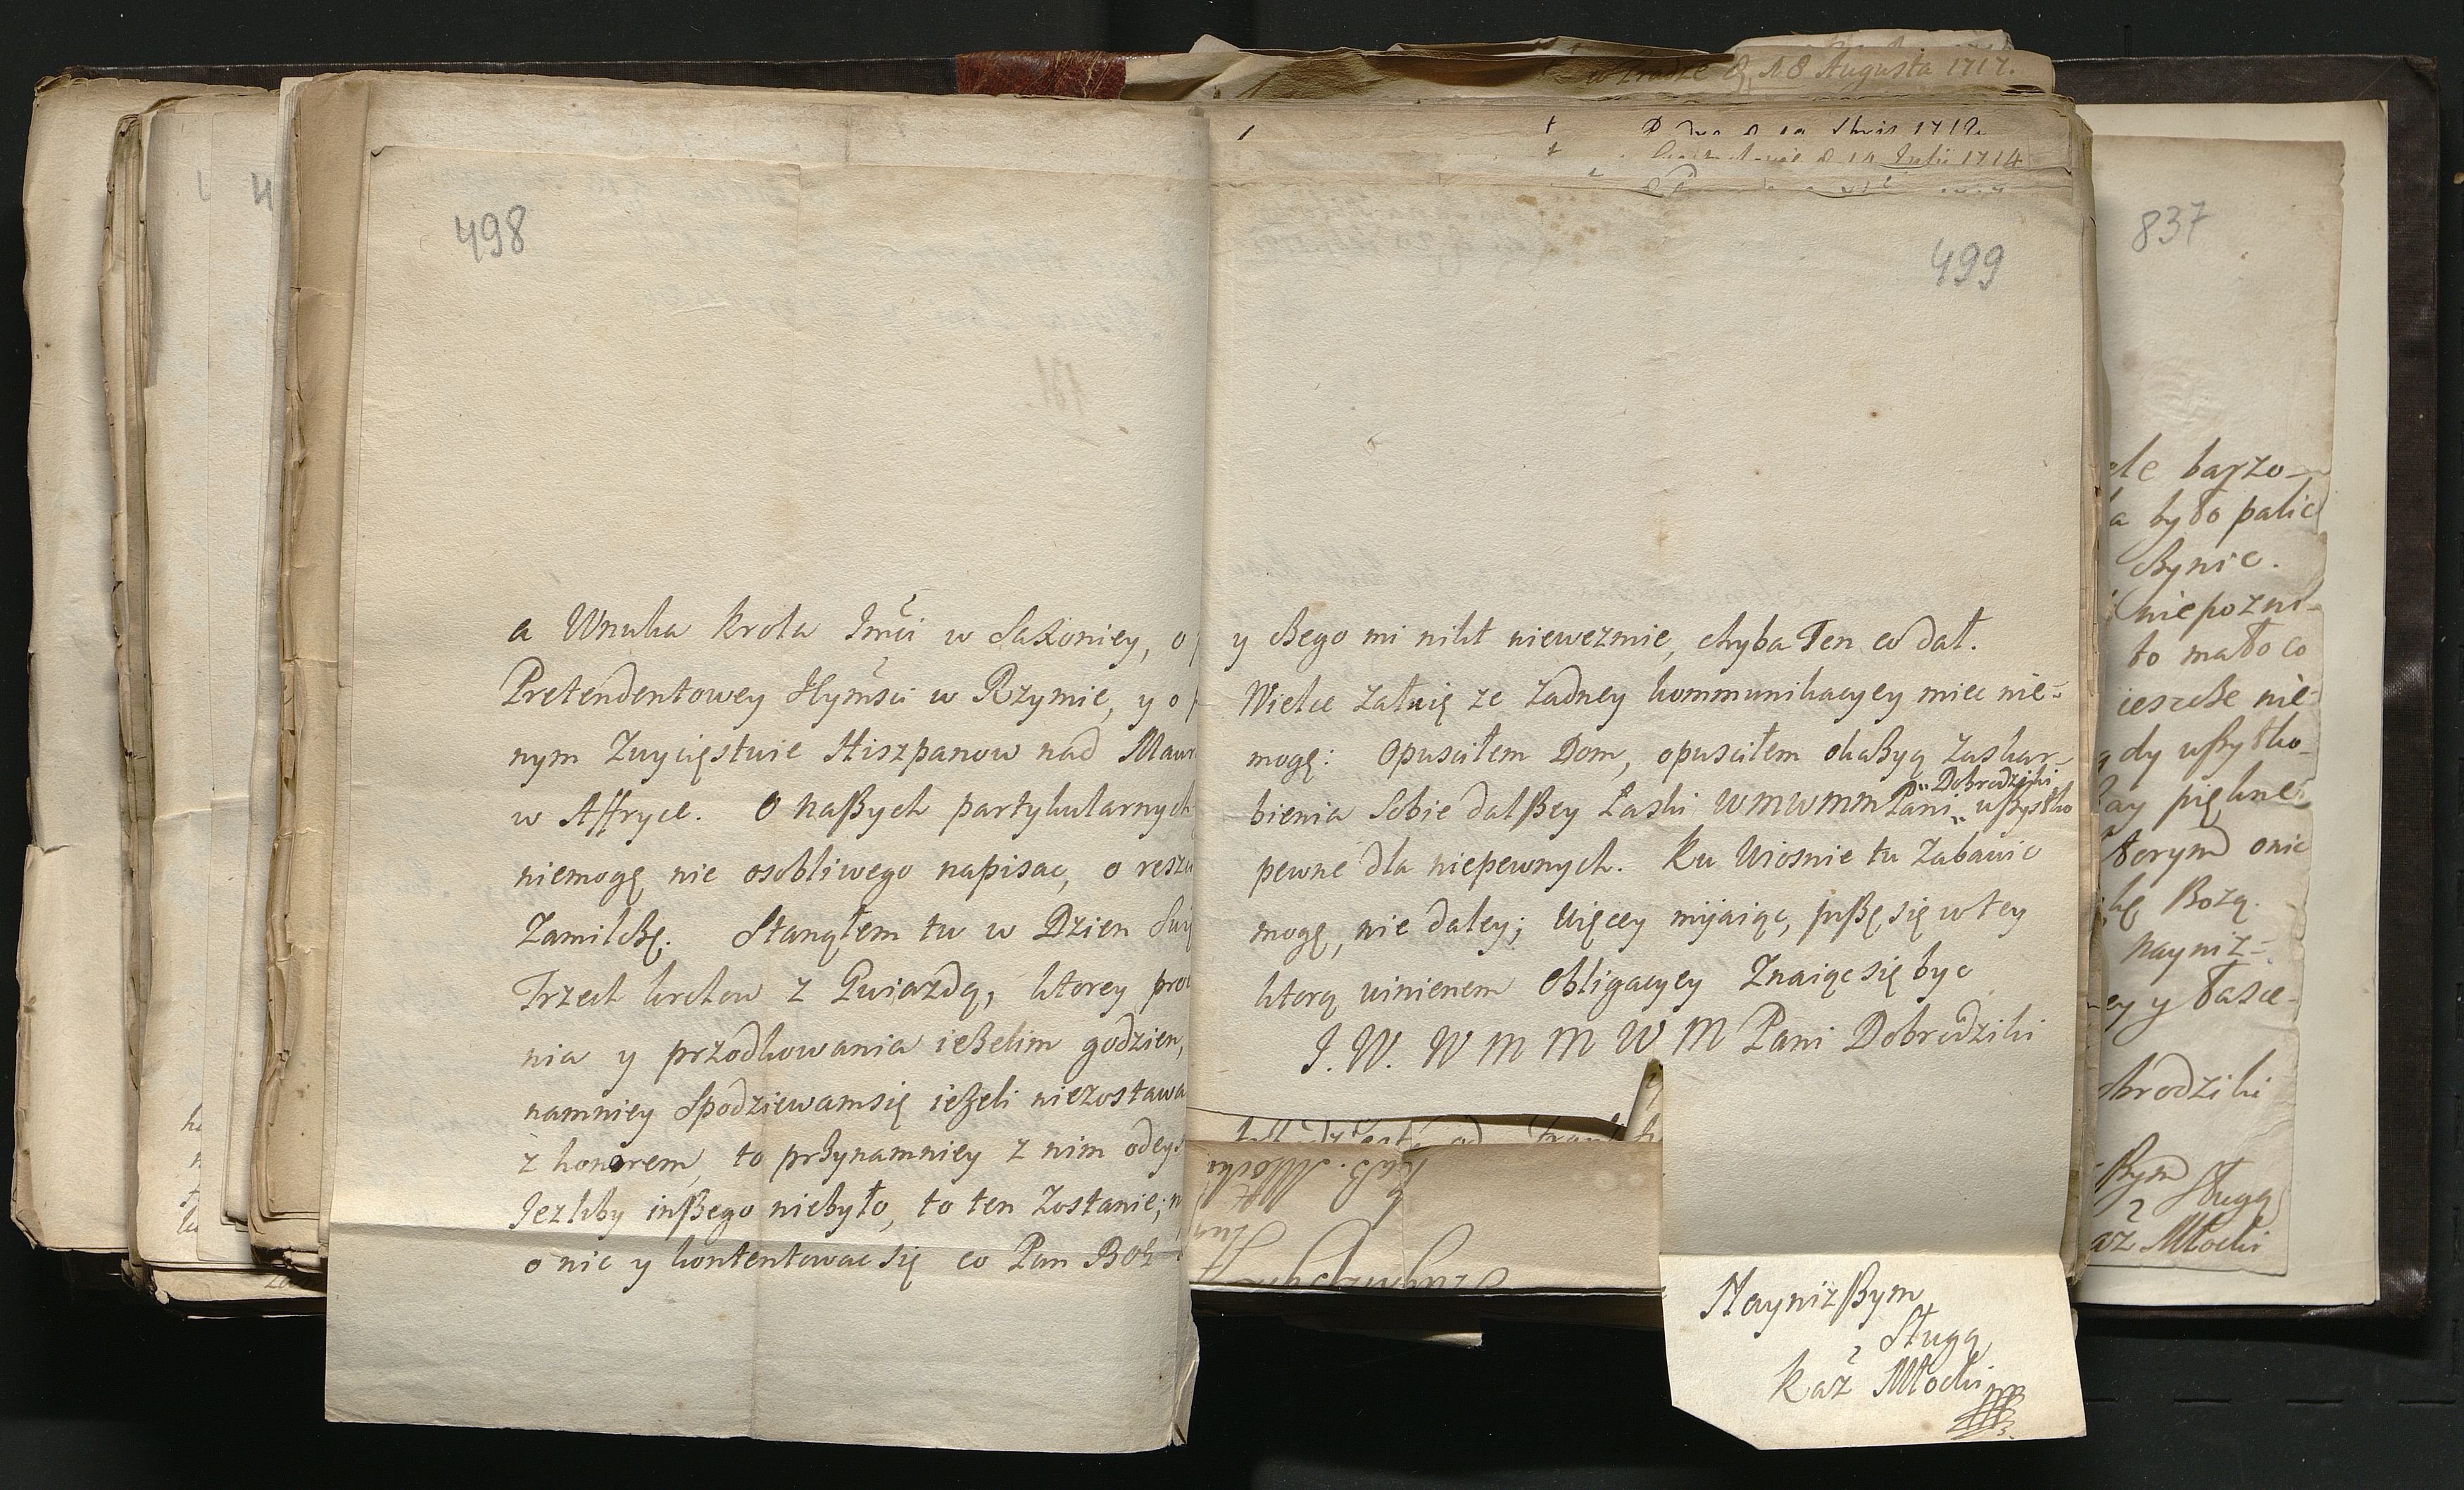 w Pradze d. 18 Augusta 1717.
498
a Wnuka Krola Jmći w Saxoniey, o
Pretendentowey Hymsci w Rzymie, y o
nym Zwycięstwie Hiszpanow nad Maur
w Affryce. O naßych partykularnych
niemogę nic osobliwego napisac, o resz
Zamilcżę. Stanąłem tu w Dzien Swię
Trzech krolow z Gwiazdą, ktorey pro
nia y przodkowania ieżelim godzien,
namniey Spodziewamsię ieżeli niezostawa
z honorem, to prżynamniey z nim odeys
Jezliby inßego niebyło, to ten Zostanie; n
o nic y kontentowac się co Pan Boż
499
y cżego mi nikt niewezmie, chyba Ten co dał.
Wielce załuię ze Zadney kommunikacyey miec nie=
mogę: Opuściłem Dom, opuściłem okaßyą Zaskar=
bienia Sobie dalßey Łaski WMWMM Pani Dobrodziki wßystko
pewne dla niepewnych. Ku Wiosnie tu Zabawic
mogę, nie daley; Więcey mijaiąc, pißę się w tey
ktorą winienem Obligacyey Znaiąc się byc
J. W. W M M W M Pani Dobrodziki
Nayniżßym
Sługą
Każ Młocki
837
barzo
było palic
niepozna=
to mało co
ieszcże nie=
gdy wßytko
pięknei
ktorym onic
Bozą.
nayniz=
y łasce
brodziki
Sługą
aż Młocki